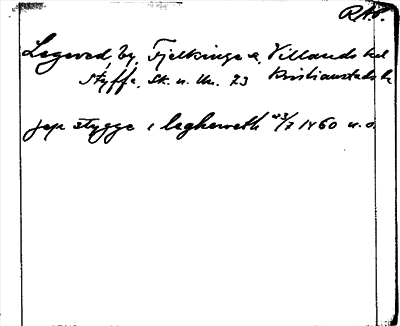 R.A.P.
Legeved, by, Fjelkinge s, Villands hd
Styffe, Sk. u. Un. 73 Kristianstads l.
jep stygge i legheweth 23/7 1460 u.o.